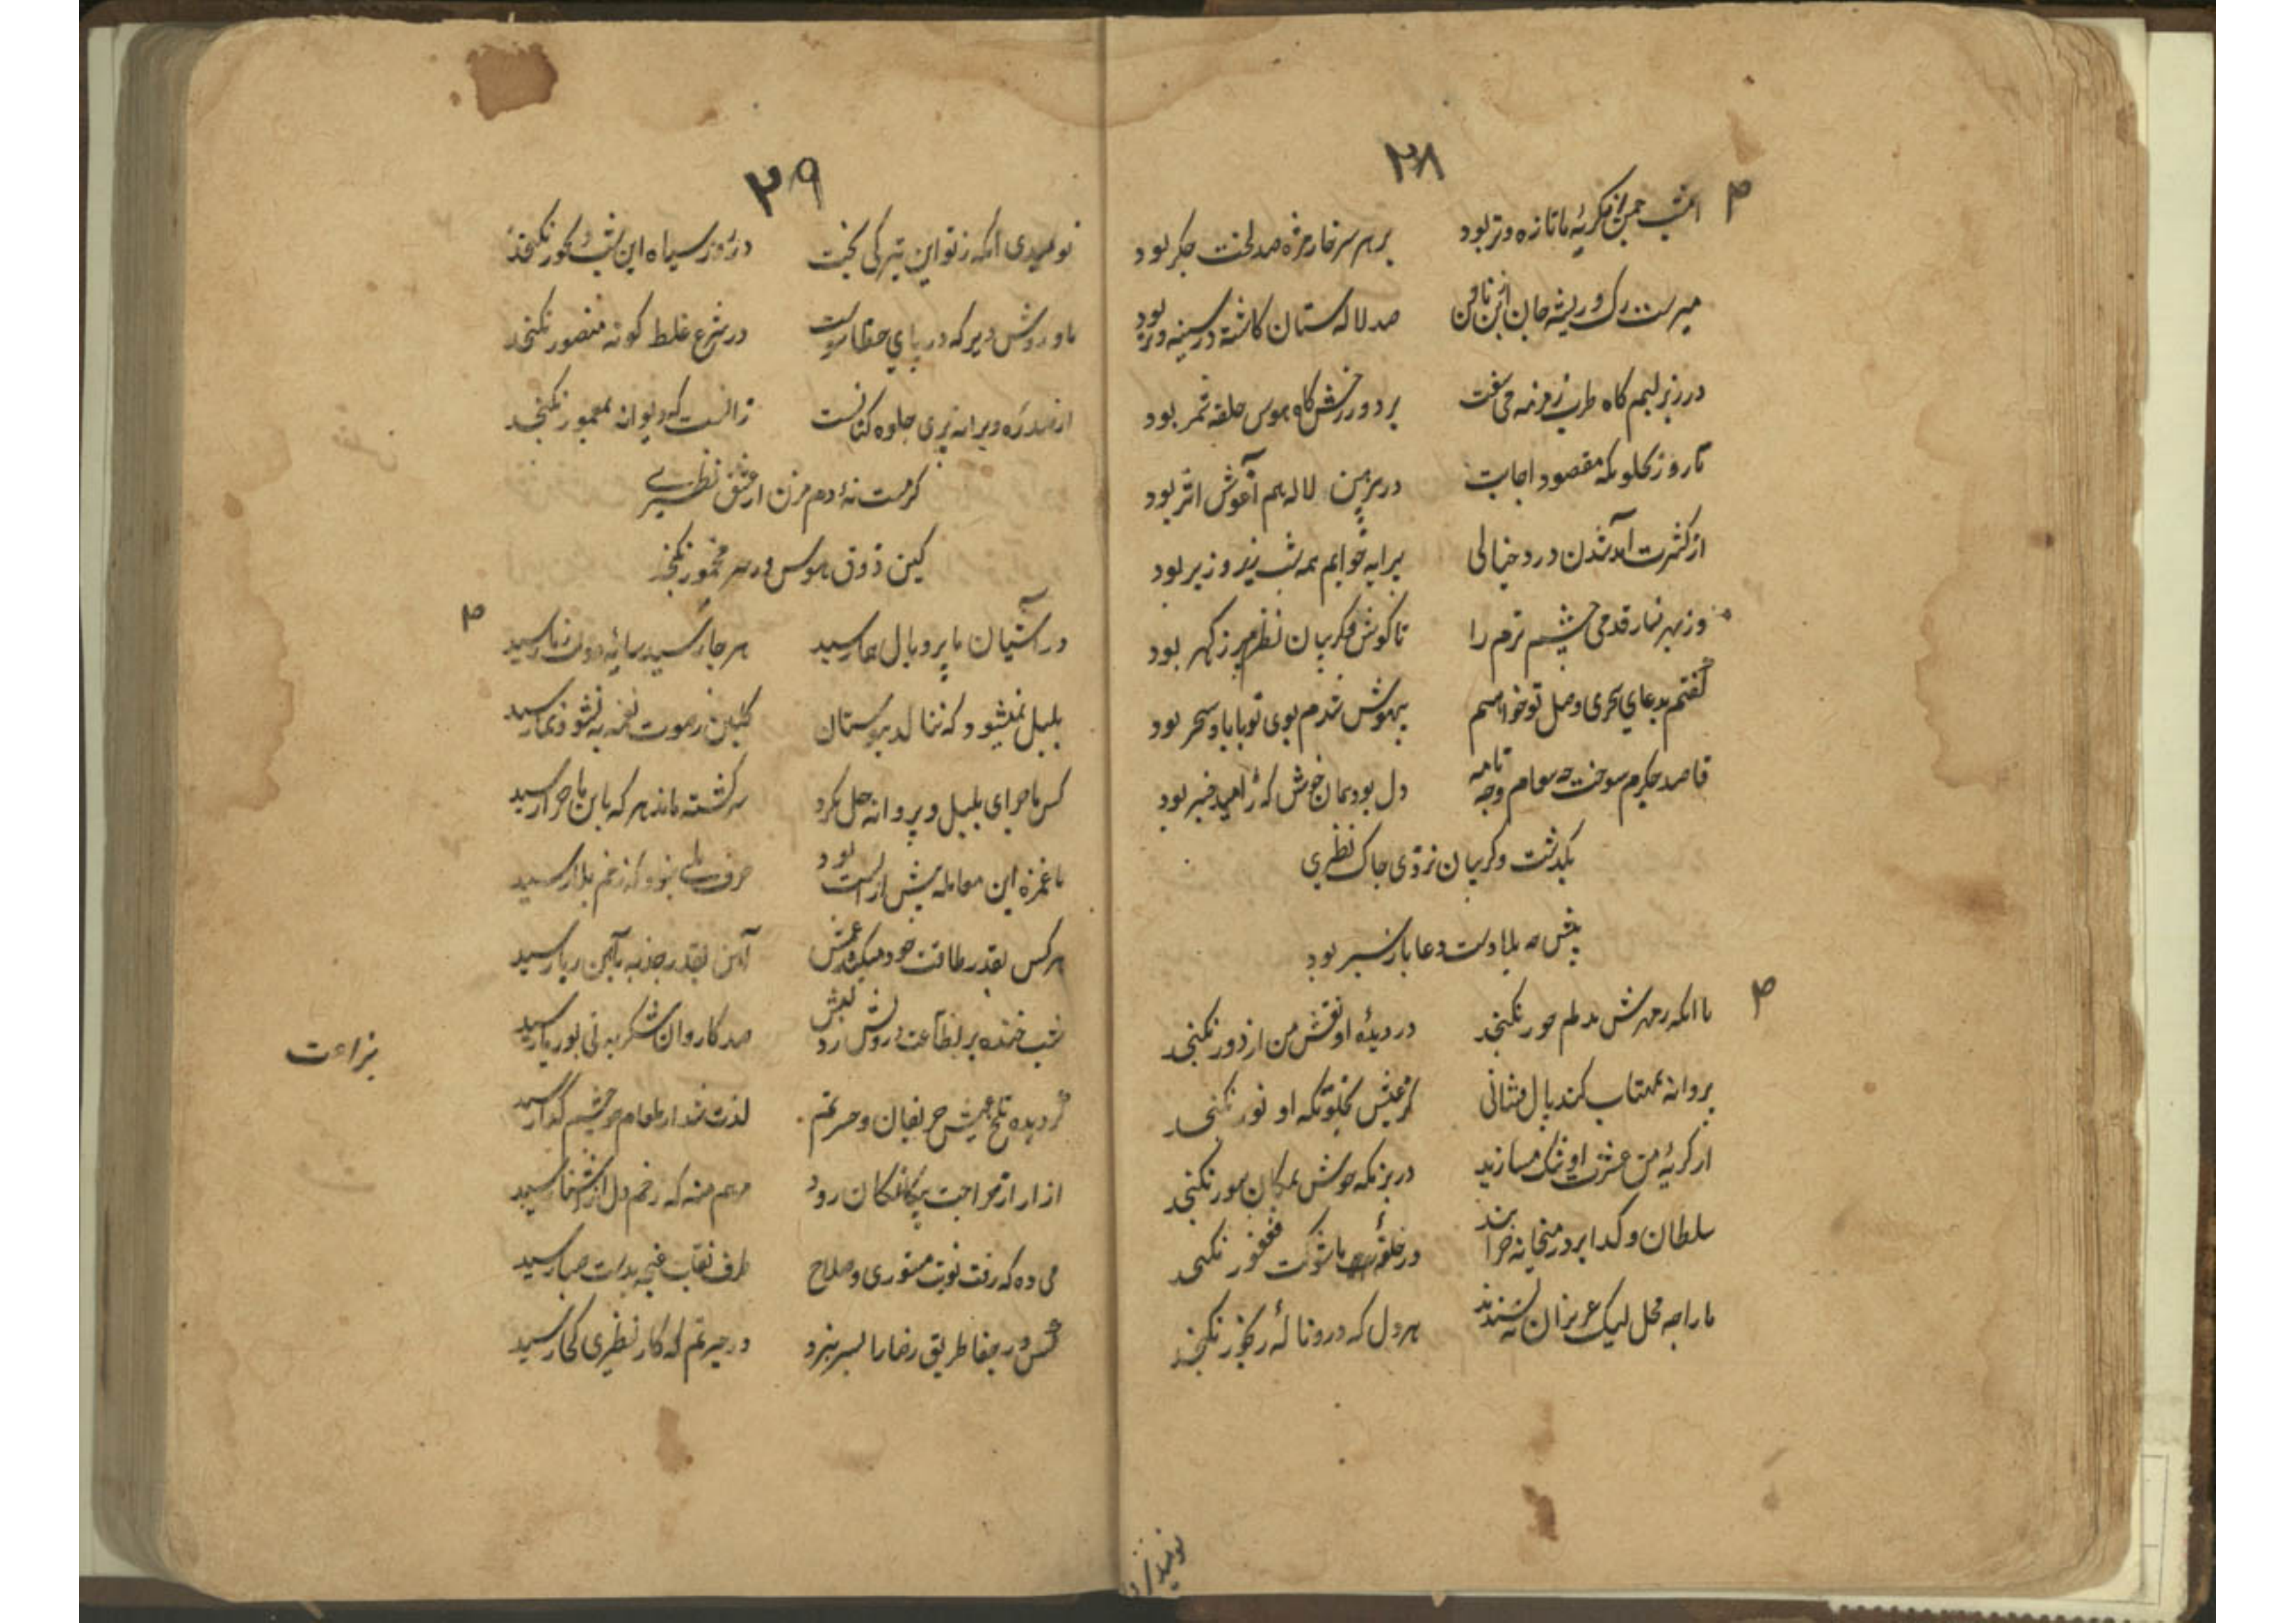 ۲۸
امشب چمن از گریهٔ ما تازه و تر بود بر هر سر خار مژه صد لخت جگر بود
میرست رگ و ریشه جان صد لاله ستان کاشته در سینه و بر بود
در زیر لبم گاه طرب زمزمه می سفت بر دور رخش گاه هوس حلقه ثمر بود
تا روز بخلوتکه مقصود اجابت در لاله هم آغوش اثر بود
از کثرت آمد شدن درد خیالی بر خوابم همه شب زیر و زبر بود
وز بهر نثار قدمی چشم ترم را تا گوش و گریبان نظر پر ز گهر بود
گفتم بدعای سحری وصل تو خواهم بیهوش شدم بوی تو با باد سحر بود
قاصد جگرم سوخت چه پیغام و چه نامه دل بود بمان خوش که ز امید خبر بود
بگذشت و گریبان نزدی چاک نظیری
پیش دست دعا باز سپر بود
با آنکه ز مهرش بدلم حور نگنجد در دیدهٔ او نقش من از دور نگنجد
پروانه بمهتاب کند بال فشانی کز عیش بخلوتکه او نور نگنجد
از گریهٔ من عشرت او تنک مسازید در بزمکه نگنجد
سلطان و گدا بر در میخانه خرابند در با شوکت فغفور نگنجد
ما را چه محل لیک عزیزان نپسندند هر دل که درو نالهٔ رنجور نگنجد
نومید
۲۹
نومیدی آنکه ز تو این تیرگی بخت در روز سیاه این شب بگور نگنجد
با روش دیر که در پای در شرع غلط گونه منصور نگنجد
از صد ره ویرانه پری جلوه کنانست زانست که دیوانه بمعمور نگنجد
گر مست نهٔ دم مزن از عشق نظیری
کین ذوق هوس در سر مخمور نگنجد
در آشیان ما پر و بال هما رسید هر جا رسید سایهٔ دولت ز ما رسید
بلبل نمیشود که ننالد ببوستان گلبن ز صوت نغمه به نشو و نما رسید
کس ماجرای بلبل و پروانه حل نکرد سرگشته ماند هر که باین ماجرا رسید
با غمزه این معامله پیش از الست بود حرف بلی نبود که زخم بلا رسید
هر کس بقدر طاقت خود میکشد غمش آهن بقدر جذبه بآهن ربا رسید
شب خنده بر لبش زد صد کاروان شکر به نی بوریا رسید
گردیده تلخ عیش حریفان و حسرتم لذت شد از طعام چو چشم گدا رسید
از جراحت پیکان رود مرهم منه که زخم دل از آشنا رسید
می ده که رفت نوبت مستوری و صلاح طرف نقاب غنچه بدست صبا رسید
کس در جفا طریق رضا را بسر نبرد در حیرتم که کار نظیری کجا رسید